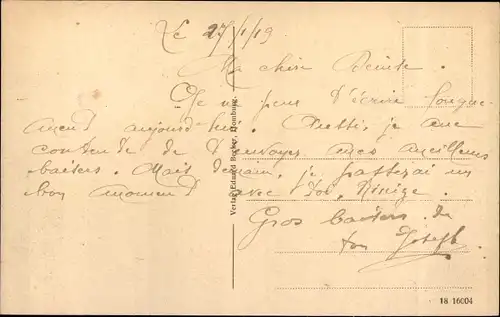 Le 27/1/19
Ma chère Denise.
Je ne peux t'écrire longue-
ment aujourd'hui. Aussi, je me
contente de t'envoyer mes meilleurs
baisers. Mais demain, je passerai un
bon moment avec toi,
Gros baisers de
ton Joseph
Verlag Eduard Homburg
18 16004